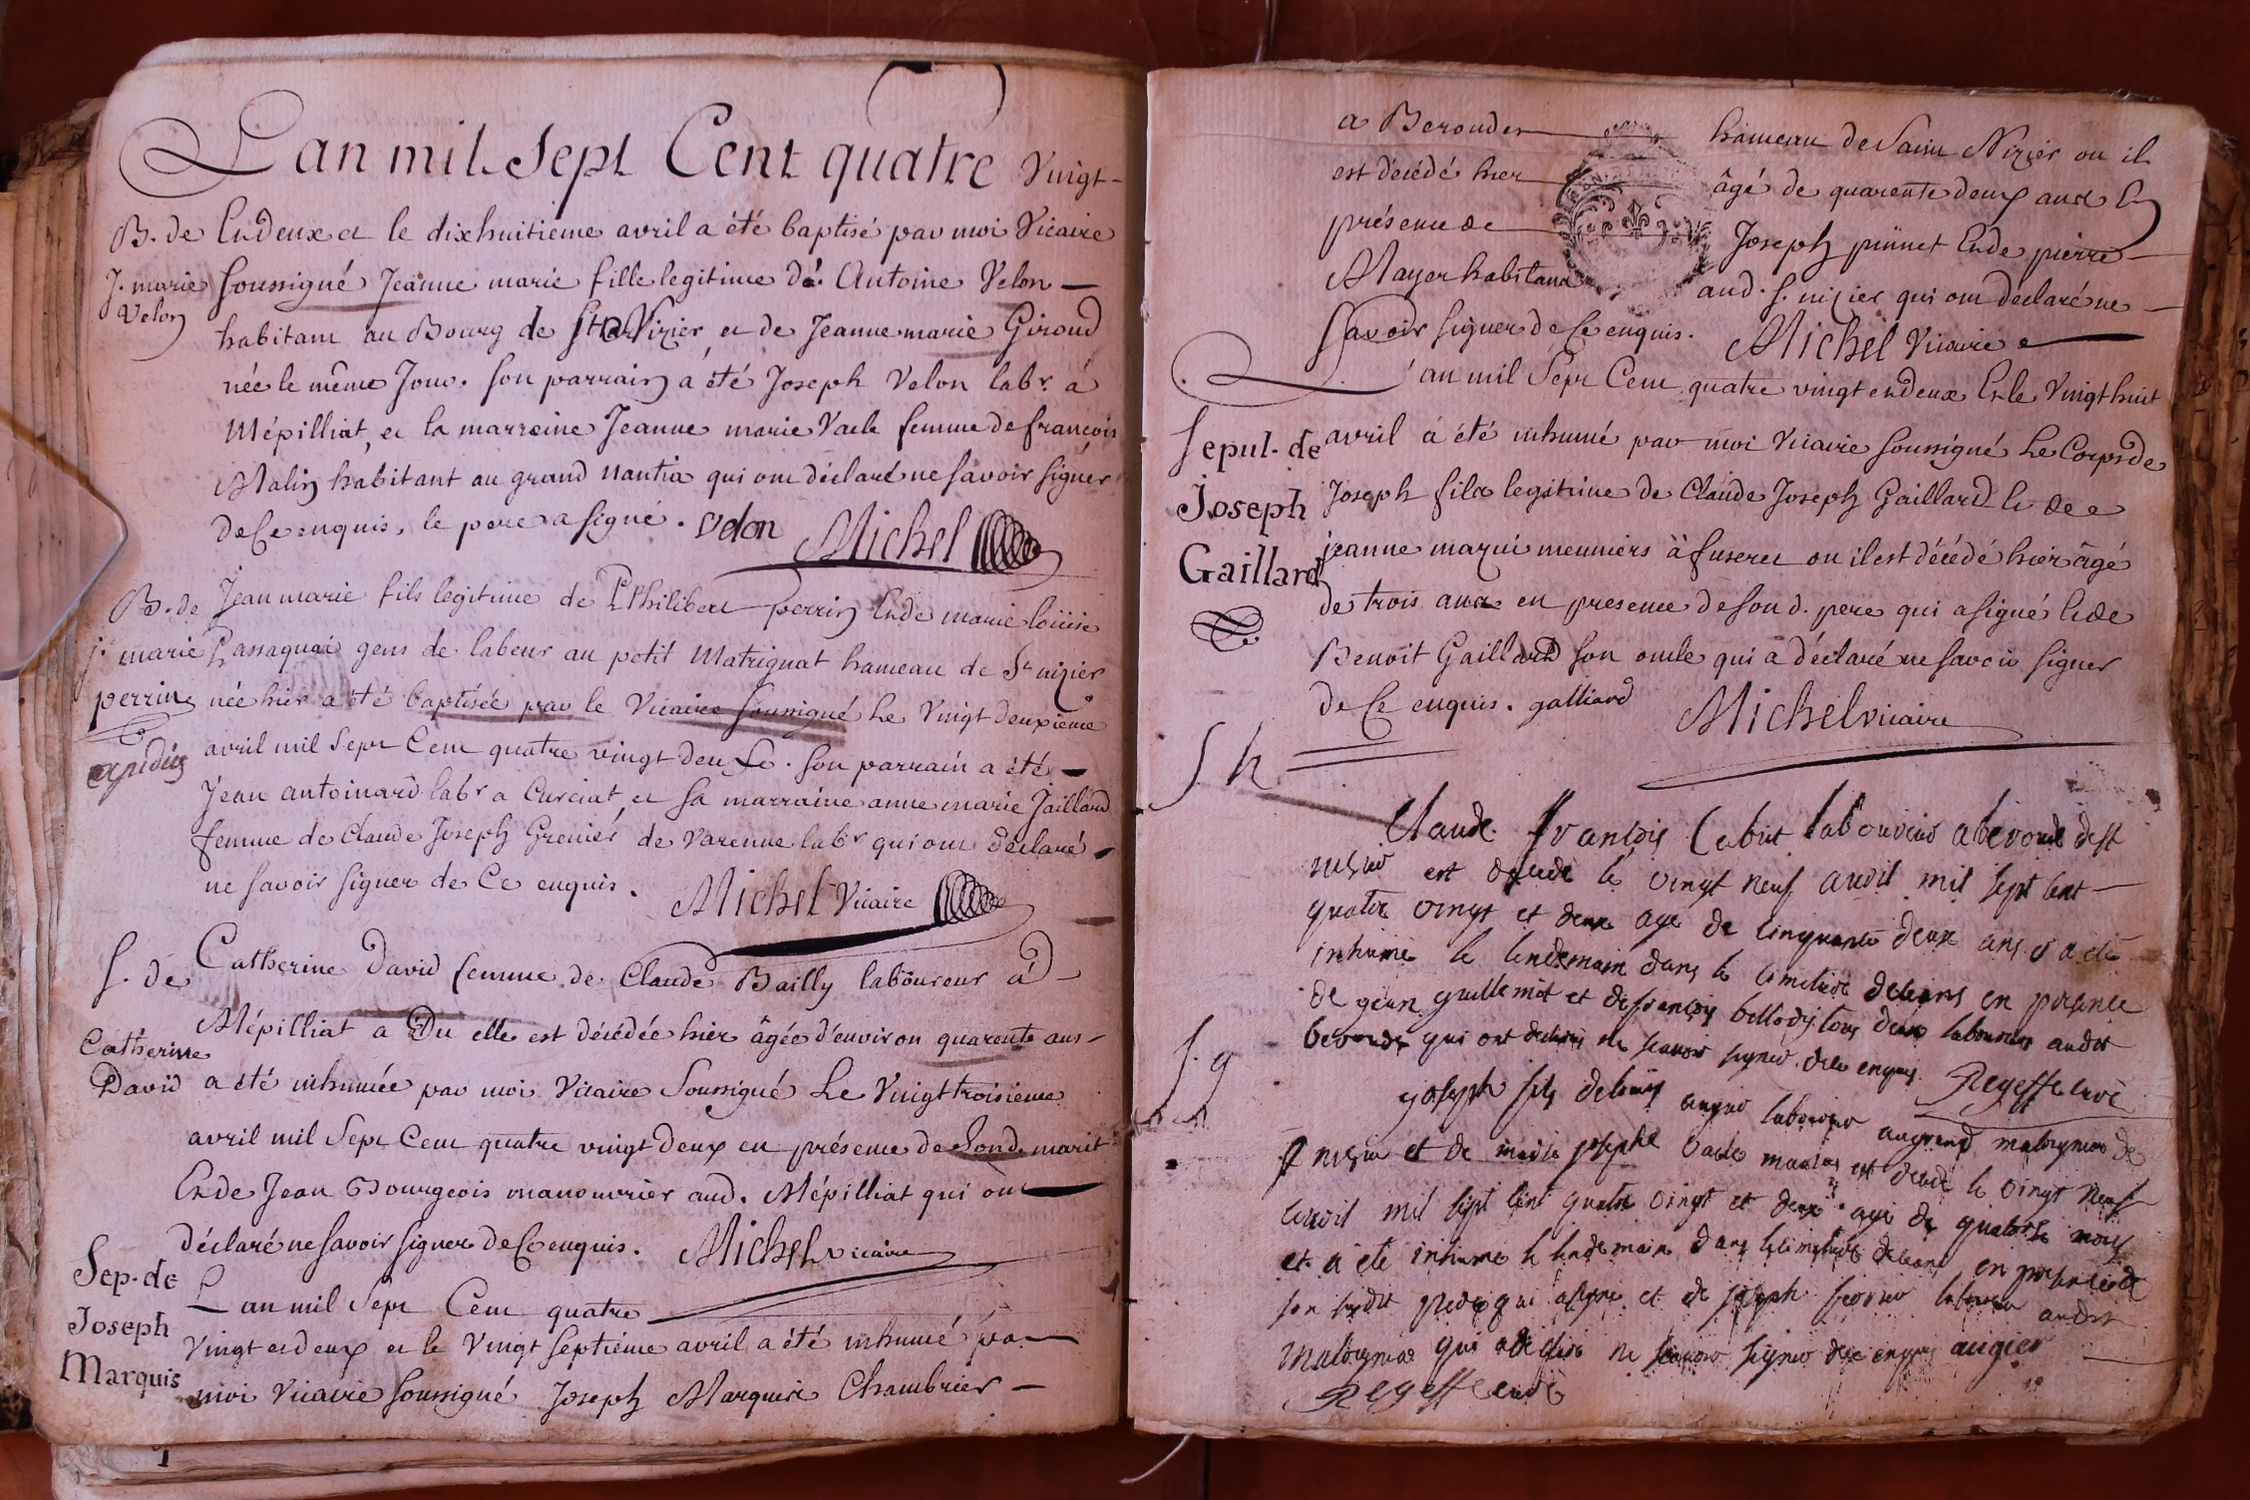 L'an mil Sept Cent quatre Vingt-
B. de
Et deux et le dixhuitieme avril a été baptisé par moi Vicaire
J. marie
Velon
soussigné Jeanne marie fille legitime de Antoine Velon
habitant au Bourg de St Nizier et de Jeanne marie Giroud
née le même Jour. son parrain a été Joseph Velon labr. à
Mépilliat, et la marreine Jeanne marie Vacle femme de françois
Malin habitant au grand Nantia qui ont déclaré ne savoir signer
de Ce enquis, le pere a signé. Velon Michel
B. de
J. marie
perrin
expédié
Jean marie fils legitime de Philibert perrin Et de marie loüise
gens de labeur au petit Matrignat hameau de St nizier
née hier a été baptisée par le Vicaire soussigné Le Vingt deuxieme
avril mil Sept Cent quatre vingt deux. son parrain a été
Jean antoinard labr a Curciat, et sa marraine anne marie Jaillard
femme de Claude Joseph Grenier de Varenne labr qui ont déclaré
ne savoir signer de Ce enquis. Michel Vicaire
S. de
Catherine
David
Catherine David femme de Claude Bailly laboureur à
Mépilliat a Du elle est décédée hier âgée d'environ quarente ans
a été inhumée par moi Vicaire Soussigné Le Vingt troisieme
avril mil Sept Cent quatre vingt deux en présence de Sond. marit
Et de Jean Bourgeois manouvrier aud. Mépilliat qui ont
déclaré ne savoir signer de Ce enquis. Michel vicaire
Sep. de
Joseph
Marquis
L'an mil Sept Cent quatre
Vingt et deux et le Vingt septiéme avril a été inhumé par
moi Vicaire soussigné Joseph Marquis Chambrier
a Beroudes hameau de Saint Nizier ou il
est décédé hier âgé de quarente deux ans En
présence de Joseph Et de pierre
Mayer habitans aud. S. nizier qui ont déclaré ne
savoir signer de Ce enquis. Michel Vicaire
Sepul. de
Joseph
Gaillard
L'an mil Sept Cent quatre vingt et deux Et le Vingt huit
avril à été inhumé par moi Vicaire soussigné Le Corps de
Joseph fils legitime de Claude Joseph Gaillard Et de
jeanne marqui meuniers à fuseret ou il est décédé hier âgé
de trois ans en presence de son d. pere qui a signé Et de
Benoit Gaillard son oncle qui à déclaré ne savoir signer
de Ce enquis. galliard Michel vicaire
S. h
Claude François Cabut laboureur a beroude de st
nisier est decede le vingt neuf avril mil sept cent
quatre vingt et deux age de cinquante deux ans et a ete
inhume le lendemain dans le cimetiere de ceans en presence
de jean guillemot et de françois bellody tous deux laboureurs audit
beroude qui ont declare ne scavoir signer de ce enquis Regeffe curé
S. g
joseph fils de louis augier laboureur au grand matrignat de
st nisier et de marie josephe vacle maries est decede le vingt neuf
avril mil sept cent quatre vingt et deux age de quatorse mois
et a ete inhume le lendemain dans le cimetiere de ceans en presence de
son susdit pere qui a signe et de joseph laboureur audit
matrignat qui a declare ne scavoir signer de ce enquis augier
Regeffe curé